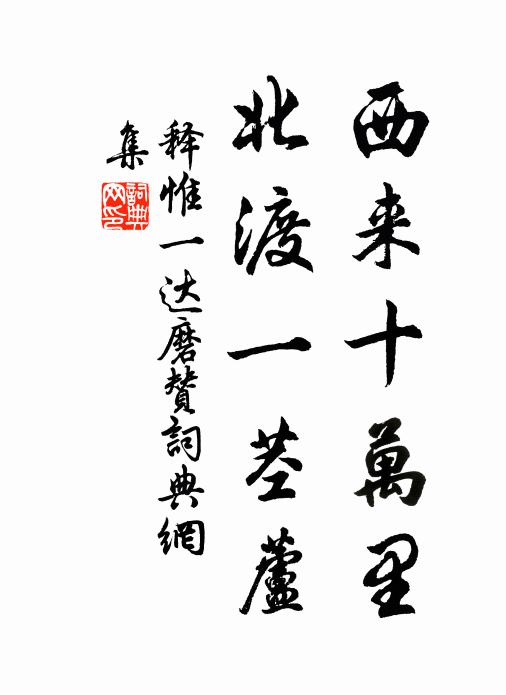 西来十萬里
北渡一茎蘆
释惟一达磨赞詞典網
集
詞典网印